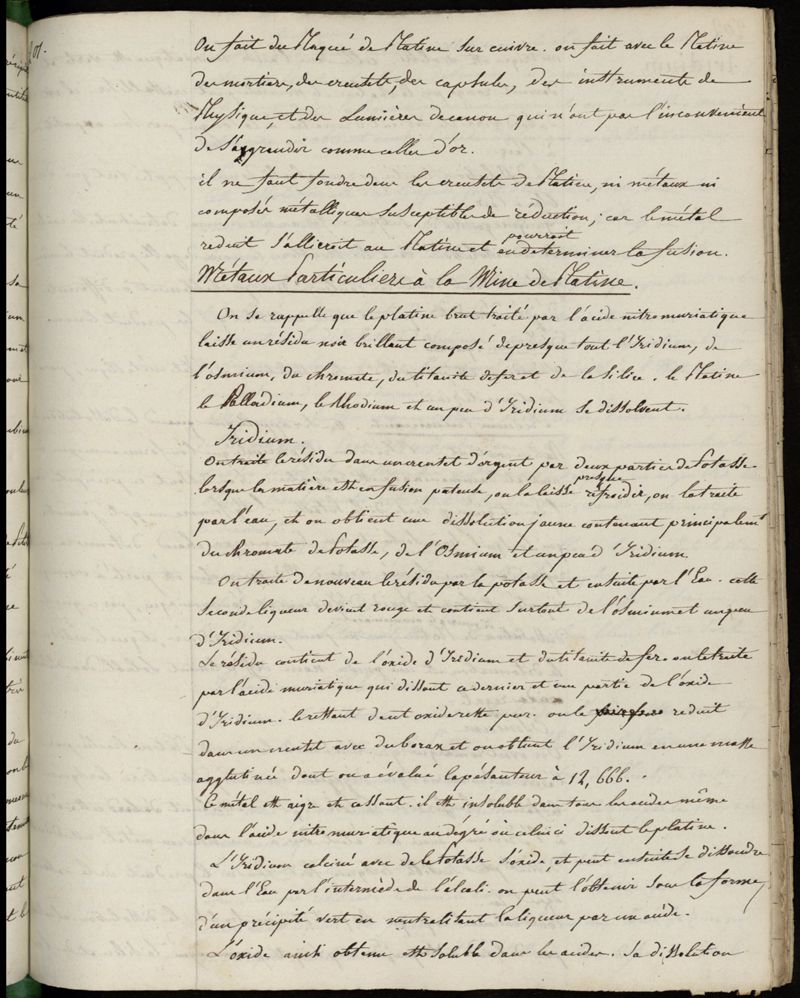 On fait du Plaqué de Platine sur cuivre. on fait avec le Platine
des mortiers, des creusets, des capsules, des instruments de
Physique, et des Lumières de canon qui n'ont pas l'inconvenient
de s'aggrandir comme celles d'or.
il ne faut fondre dans les creusets de Platine, ni métaux ni
composés métalliques susceptibles de réduction; car le métal
reduit s'allieroit au Platine et en pourroit determiner la fusion.
Métaux Particuliers à la Mine de Platine.
On se rappelle que le platine brut traité par l'acide nitro muriatique
laisse un résidu noir brillant composé de presque tout l'Iridium, de
l'osmium, du chromate, du titanite de fer et de la Silice. le Platine
le Palladium, le Rhodium et un peu d'Iridium se dissolvent.
Iridium.
On traite le résidu dans un creuset d'argent par deux parties de Potasse
lorsque la matière est en fusion pateuse, on la laisse presque refroidir, on la traite
par l'eau, et on obtient une dissolution jaune contenant principalemt
du chromate de Potasse, de l'Osmium et un peu d'Iridium.
On traite de nouveau le résidu par la potasse et ensuite par l'Eau. cette
seconde liqueur devient rouge et contient surtout de l'osmium et un peu
d'Iridium.
Le résidu contient de l'oxide d'Iridium et du titanite de fer. on le traite
par l'acide muriatique qui dissout ce dernier et une partie de l'oxide
d'Iridium. le restant de cet oxide reste pur. on le reduit
dans un creuset avec du borax et on obtient l'Iridium en une masse
agglutinée dont on a évalué la pésanteur à 12,666.
Ce métal est aigre et cassant. il est insoluble dans tous les acides même
dans l'acide nitro muriatique au dégré où celui ci dissout le platine.
L'Iridium calciné avec de la Potasse s'oxide, et peut ensuite se dissoudre
dans l'Eau par l'intermède de l'alcali. on peut l'obtenir sous la forme
d'un précipité vert en neutralisant la liqueur par un acide.
L'oxide ainsi obtenu est soluble dans les acides. Sa dissolution